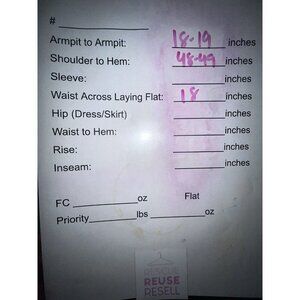 # ____________
Armpit to Armpit: 18-19 inches
Shoulder to Hem: 48-49 inches
Sleeve: ________ inches
Waist Across Laying Flat: 18 inches
Hip (Dress/Skirt) ________ inches
Waist to Hem: ________ inches
Rise: ________ inches
Inseam: ________ inches
FC ____________oz Flat
Priority________lbs ________oz
REUSE
RESELL